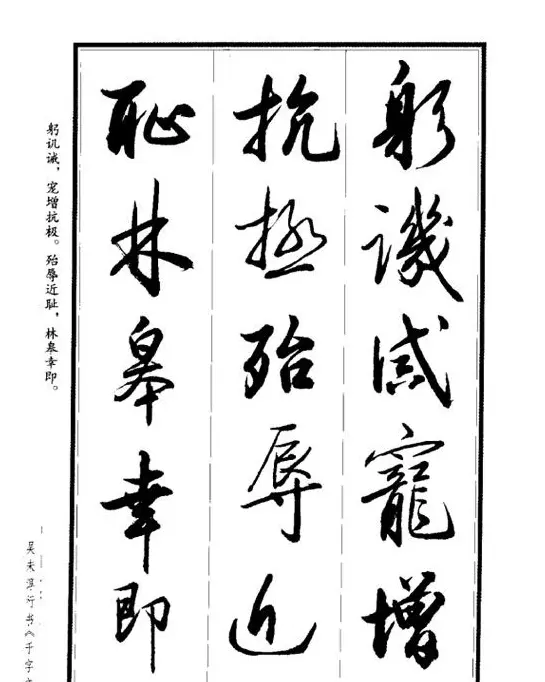 躬譏誡寵增
抗極殆辱近
恥林皋幸即
躬讥诫，宠增抗极。殆辱近耻，林皋幸即。
吴未淳行书《千字